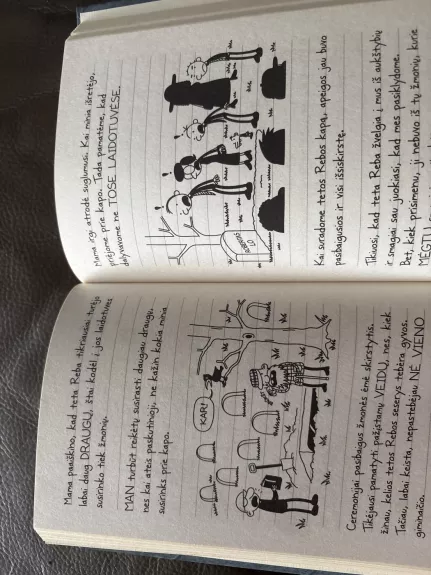 Mama paaiškino, kad teta Reba tikriausiai turėjo
labai daug DRAUGŲ, štai kodėl į jos laidotuves
susirinko tiek žmonių.
MAN turbūt reikėtų susirasti daugiau draugų,
nes kai ateis paskutinioji, ne kažin kokia minia
susirinks prie kapo.
KAR!
Ceremonijai pasibaigus žmonės ėmė skirstytis.
Tikėjausi pamatyti pažįstamų VEIDŲ, nes, kiek
žinau, kelios tetos Rebos seserys tebėra gyvos.
Tačiau, labai keista, nepastebėjau NĖ VIENO
giminaičio.
Mama irgi atrodė suglumusi. Kai minia išretėjo,
priėjome prie kapo. Tada pamatėme, kad
dalyvavome ne TOSE LAIDOTUVĖSE.
Kai suradome tetos Rebos kapą, apeigos jau buvo
pasibaigusios ir visi išsiskirstę.
Tikiuosi, kad teta Reba žvelgia į mus iš aukštybių
ir smagiai sau juokiasi, kad mes pasiklydome.
Bet, kiek prisimenu, ji nebuvo iš tų žmonių, kurie
MĖGTŲ